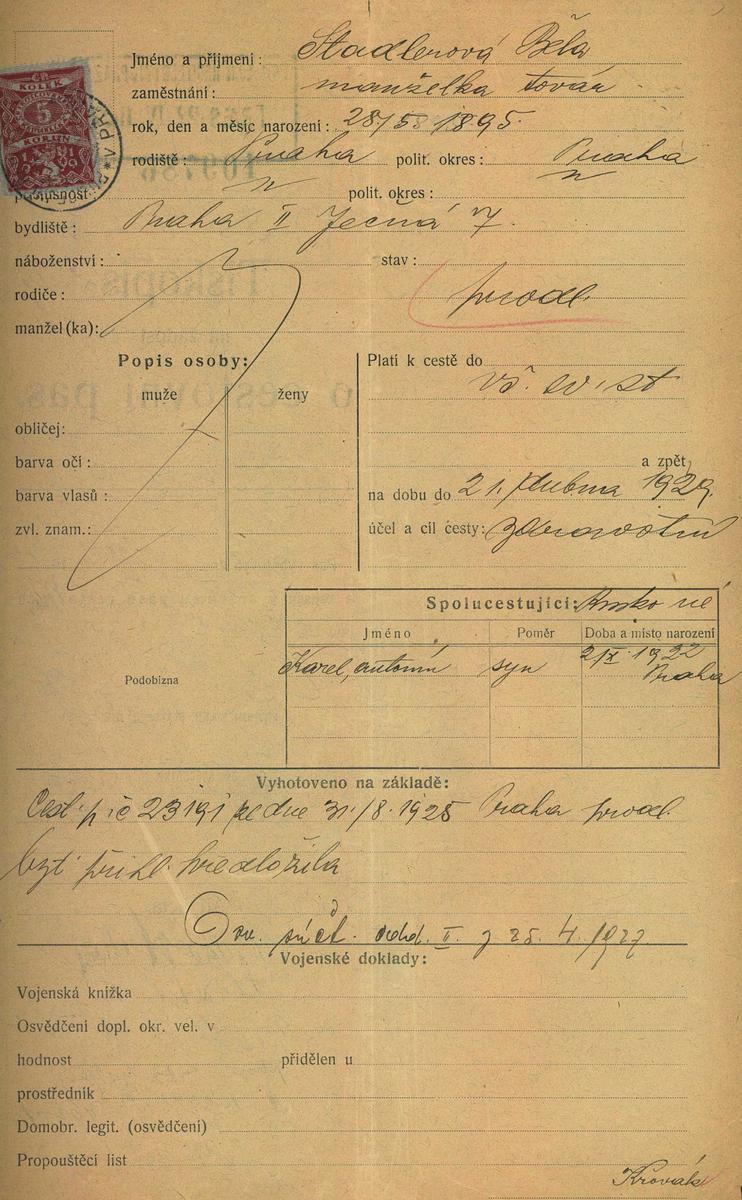 Jméno a příjmení: Stadlerová Běla
zaměstnání: manželka továr
rok, den a měsíc narození: 28/5 1895.
rodiště: Praha polit. okres: Praha
příslušnost: n polit. okres: n
bydliště: Praha II Ječná 7.
náboženství: stav:
rodiče: prodl.
manžel(ka):
Popis osoby: Platí k cestě do
muže ženy vš. ev. st
obličej:
barva očí: a zpět
barva vlasů: na dobu do 21. dubna 1929.
zvl. znam.: účel a cíl cesty: zdravotní
ČR
KOLEK
5
KORUN
1919
Spolucestující:
Jméno Poměr Doba a místo narození
Karel, Antonín syn 2/X 1922
Praha
Podobizna
Vyhotoveno na základě:
Cest. p. č 23191 ze dne 31./8. 1925 Praha prodl.
byt. přihl. předložila
Osv. súčt. odd. II. z 25. 4. 1927
Vojenské doklady:
Vojenská knížka
Osvědčení dopl. okr. vel. v
hodnost přidělen u
prostředník
Domobr. legit. (osvědčení)
Propouštěcí list